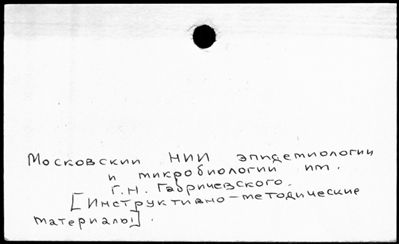 Московский НИИ эпидемиологии
и микробиологии им.
Г.Н. Габричевского.
[Инструктивно-методические
материалы].